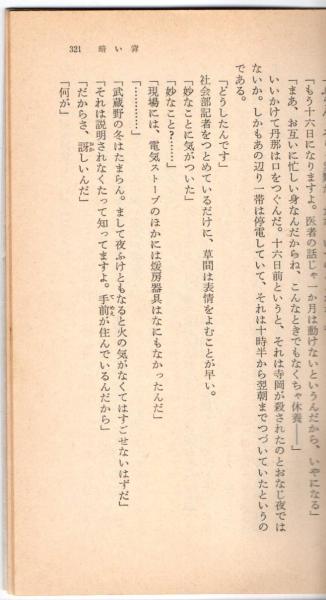 321　暗い穽
「もう十六日になりますよ。医者の話じゃ一か月は動けないというんだから、いやになる」
「まあ、お互いに忙しい身なんだからね、こんなときでもなくちゃ休養──」
いいかけて丹那は口をつぐんだ。十六日前というと、それは寺岡が殺されたのとおなじ夜では
ないか。しかもあの辺り一帯は停電していて、それは十時半から翌朝までつづいていたというの
である。
「どうしたんです」
社会部記者をつとめているだけに、草間は表情をよむことが早い。
「妙なことに気がついた」
「妙なこと？……」
「現場には、電気ストーブのほかには煖房器具はなにもなかったんだ」
「…………」
「武蔵野の冬はたまらん。まして夜ふけともなると火の気がなくてはすごせないはずだ」
「それは説明されなくたって知ってますよ。手前が住んでいるんだから」
「だからさ、訝しいんだ」
「何が」